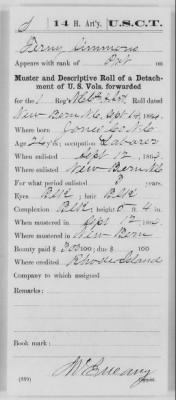 S | 14 H. Art'y. | U.S.C.T.
Perry Simmons
Appears with rank of Pvt on
Muster and Descriptive Roll of a Detach-
ment of U. S. Vols. forwarded
for the 1 Reg't Roll dated
New Bern N.C. Sept 14, 1864.
Where born Jones Co. N.C.
Age y'rs; occupation Laborer
When enlisted Sept 12, 1864.
Where enlisted New Bern N.C.
For what period enlisted 3 years.
Eyes Blk; hair Blk
Complexion Blk; height 5 ft. 4 in.
When mustered in Sept 12, 1864.
Where mustered in New Bern
Bounty paid $ 300/100; due $ /100
Where credited Rhode Island
Company to which assigned
Remarks:
Book mark:
(339) Copyist.